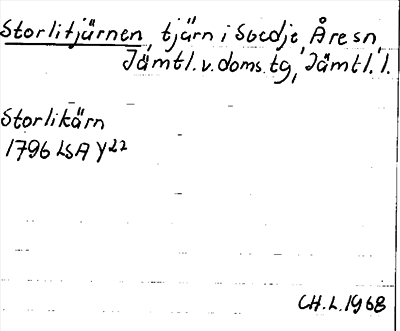 Storlitjärnen, tjärn i Sbedje, Åre sn,
Jämtl. v. doms. tg, Jämtl. l.
Storlikärn
1796 LSA Y22
CH. L. 1968